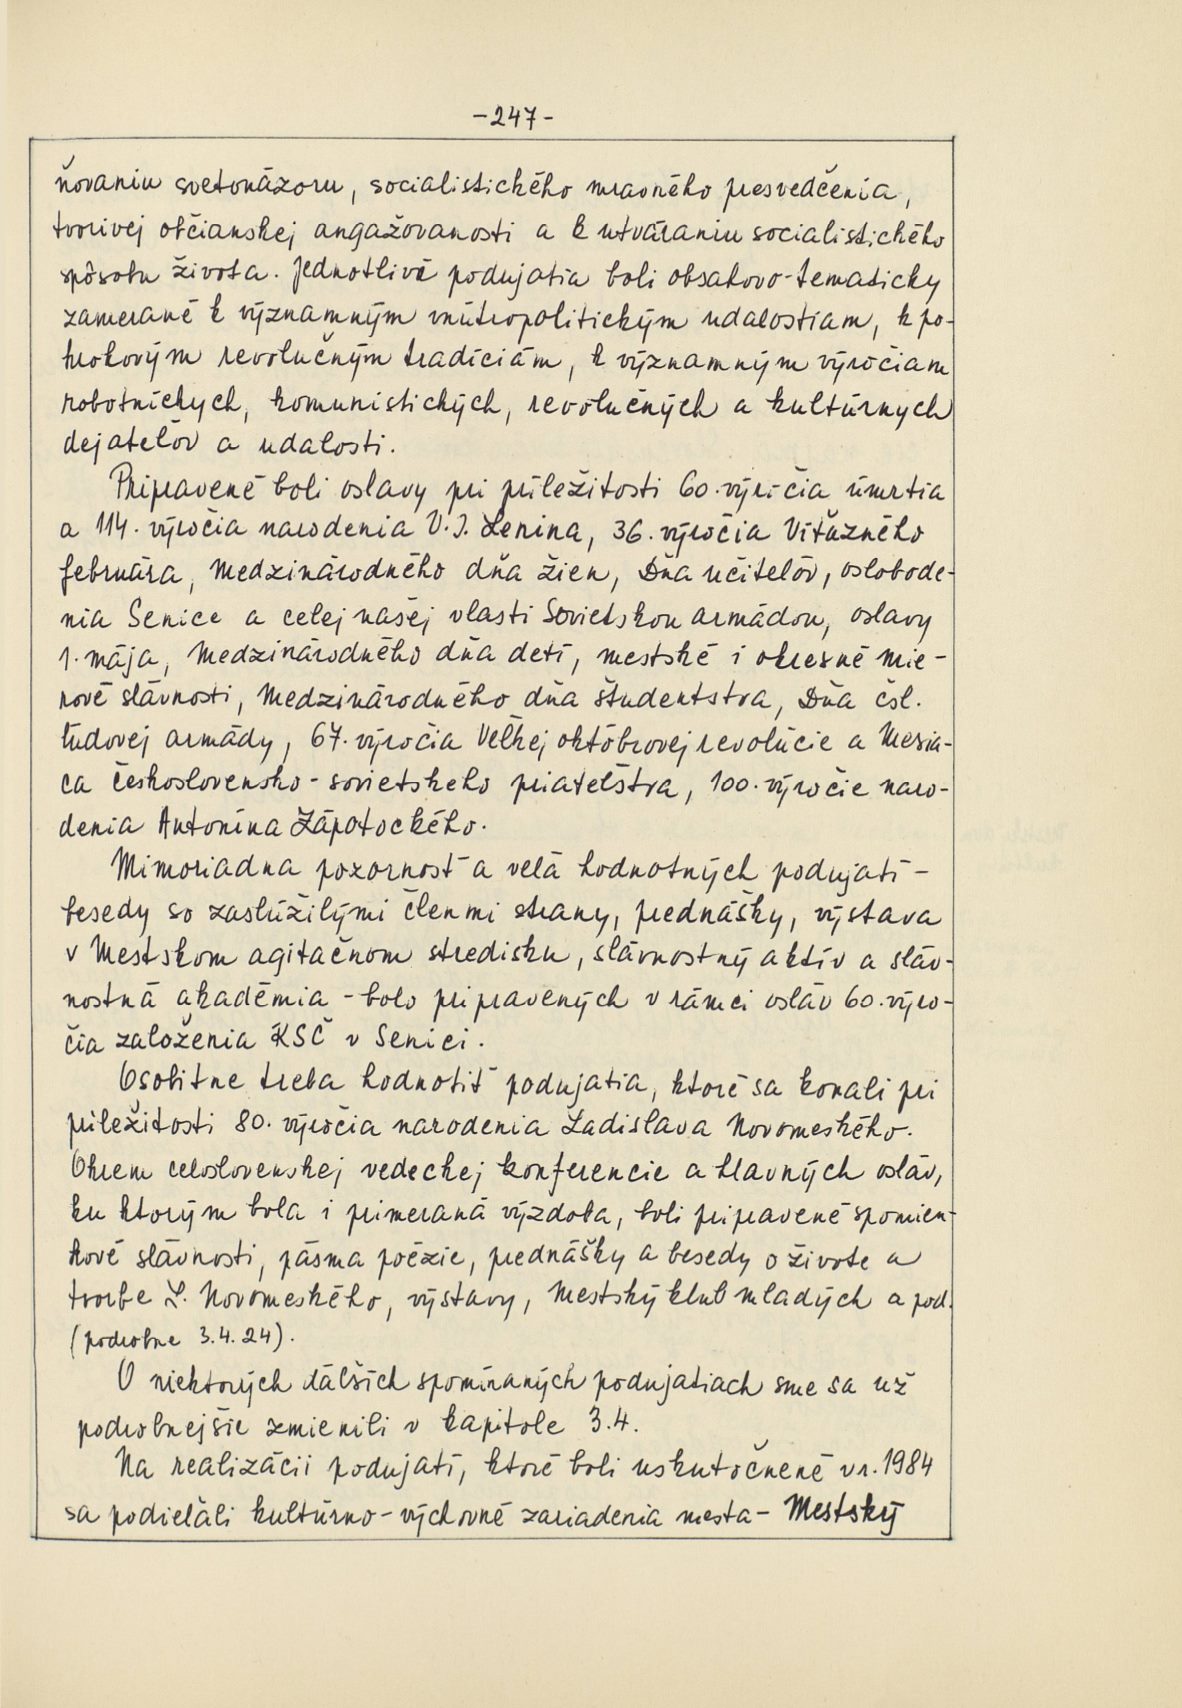 -247-
ňovaniu svetonázoru, socialistického mravného presvedčenia,
tvorivej občianskej angažovanosti a k utváraniu socialistického
spôsobu života. Jednotlivé podujatia boli obsahovo-tematicky
zamerané k významným vnútropolitickým udalostiam, k po-
krokovým revolučným tradíciám, k významným výročiam
robotníckych, komunistických, revolučných a kultúrnych
dejateľov a udalosti.
Pripravené boli oslavy pri príležitosti 60. výročia úmrtia
a 114. výročia narodenia V. I. Lenina, 36. výročia Víťazného
februára, Medzinárodného dňa žien, Dňa učiteľov, oslobode-
nia Senice a celej našej vlasti Sovietskou armádou, oslavy
1. mája, Medzinárodného dňa detí, mestské i okresné mie-
rové slávnosti, Medzinárodného dňa študentstva, Dňa čsl.
ľudovej armády, 67. výročia Veľkej októbrovej revolúcie a Mesia-
ca československo-sovietskeho priateľstva, 100. výročie naro-
denia Antonína Zápotockého.
Mimoriadna pozornosť a veľa hodnotných podujatí -
besedy so zaslúžilými členmi strany, prednášky, výstava
v Mestskom agitačnom stredisku, slávnostný aktív a sláv-
nostná akadémia - bolo pripravených v rámci osláv 60. výro-
čia založenia KSČ v Senici.
Osobitne treba hodnotiť podujatia, ktoré sa konali pri
príležitosti 80. výročia narodenia Ladislava Novomeského.
Okrem celoslovenskej vedeckej konferencie a hlavných osláv,
ku ktorým bola i primeraná výzdoba, boli pripravené spomien-
kové slávnosti, pásma poézie, prednášky a besedy o živote a
tvorbe L. Novomeského, výstavy, Mestský klub mladých a pod.
(podrobne 3.4.24).
O niektorých ďalších spomínaných podujatiach sme sa už
podrobnejšie zmienili v kapitole 3.4.
Na realizácii podujatí, ktoré boli uskutočnené v r. 1984
sa podieľali kultúrno-výchovné zariadenia mesta - Mestský